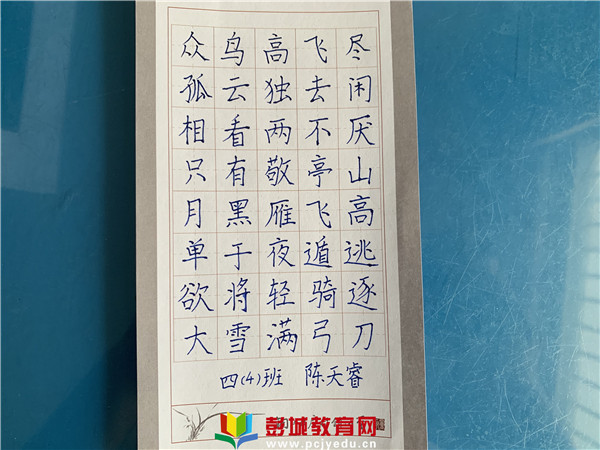 众鸟高飞尽
孤云独去闲
相看两不厌
只有敬亭山
月黑雁飞高
单于夜遁逃
欲将轻骑逐
大雪满弓刀
四(4)班 陈天睿
彭城教育网
www.pcjyedu.cn